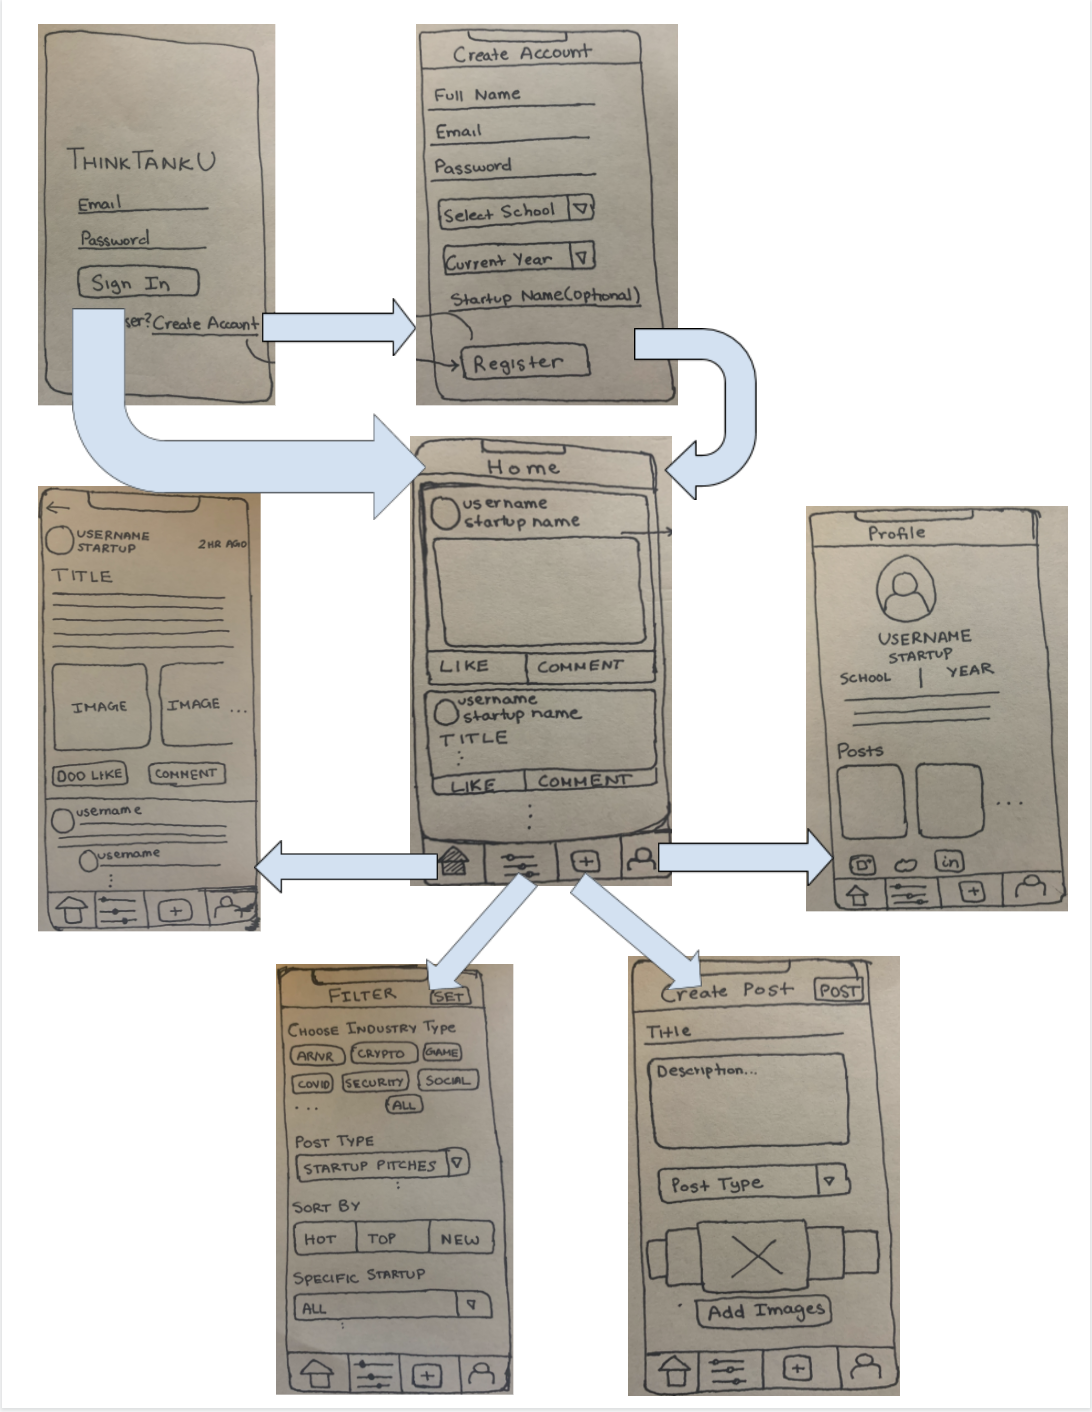 THINKTANKU
Email
Password
Sign In
ser? Create Account
Create Account
Full Name
Email
Password
Select School
Current Year
Startup Name (optional)
Register
Home
username
startup name
LIKE COMMENT
username
startup name
TITLE
LIKE COMMENT
USERNAME
STARTUP
2HR AGO
TITLE
IMAGE IMAGE ...
DOO LIKE COMMENT
username
username
Profile
USERNAME
STARTUP
SCHOOL | YEAR
Posts
...
in
FILTER SET
CHOOSE INDUSTRY TYPE
AR/VR CRYPTO GAME
COVID SECURITY SOCIAL
... ALL
POST TYPE
STARTUP PITCHES
SORT BY
HOT TOP NEW
SPECIFIC STARTUP
ALL
Create Post POST
Title
Description...
Post Type
Add Images